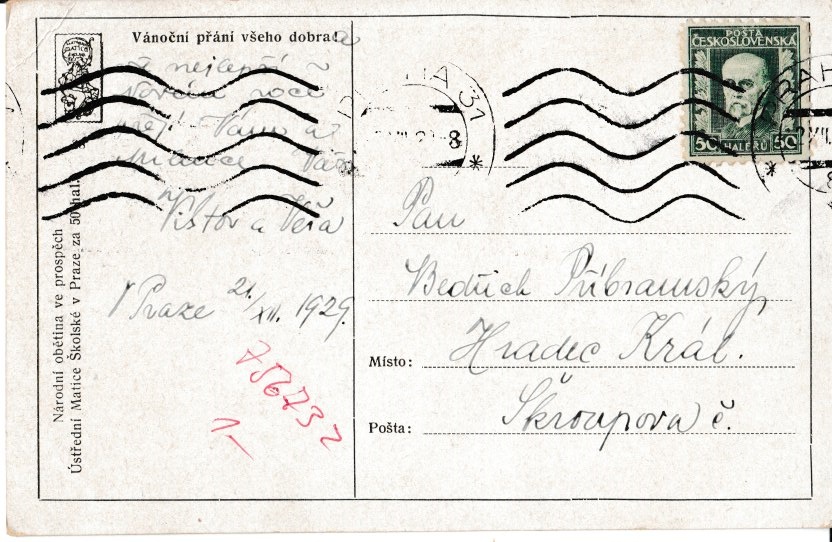 Vánoční přání všeho dobra: a
nejlepší
Novém roce
přejí Vám a
Viktor a Věra
V Praze 21/XII. 1929.
756732
1-
Národní obětina ve prospěch
Ústřední Matice Školské v Praze, za 50 hal.
PRAHA 31
8
POŠTA
ČESKOSLOVENSKÁ
50 HALÉŘŮ 50
PRAH
8
Pan
Bedřich Příbramský
Místo: Hradec Král.
Pošta: Škroupova č.